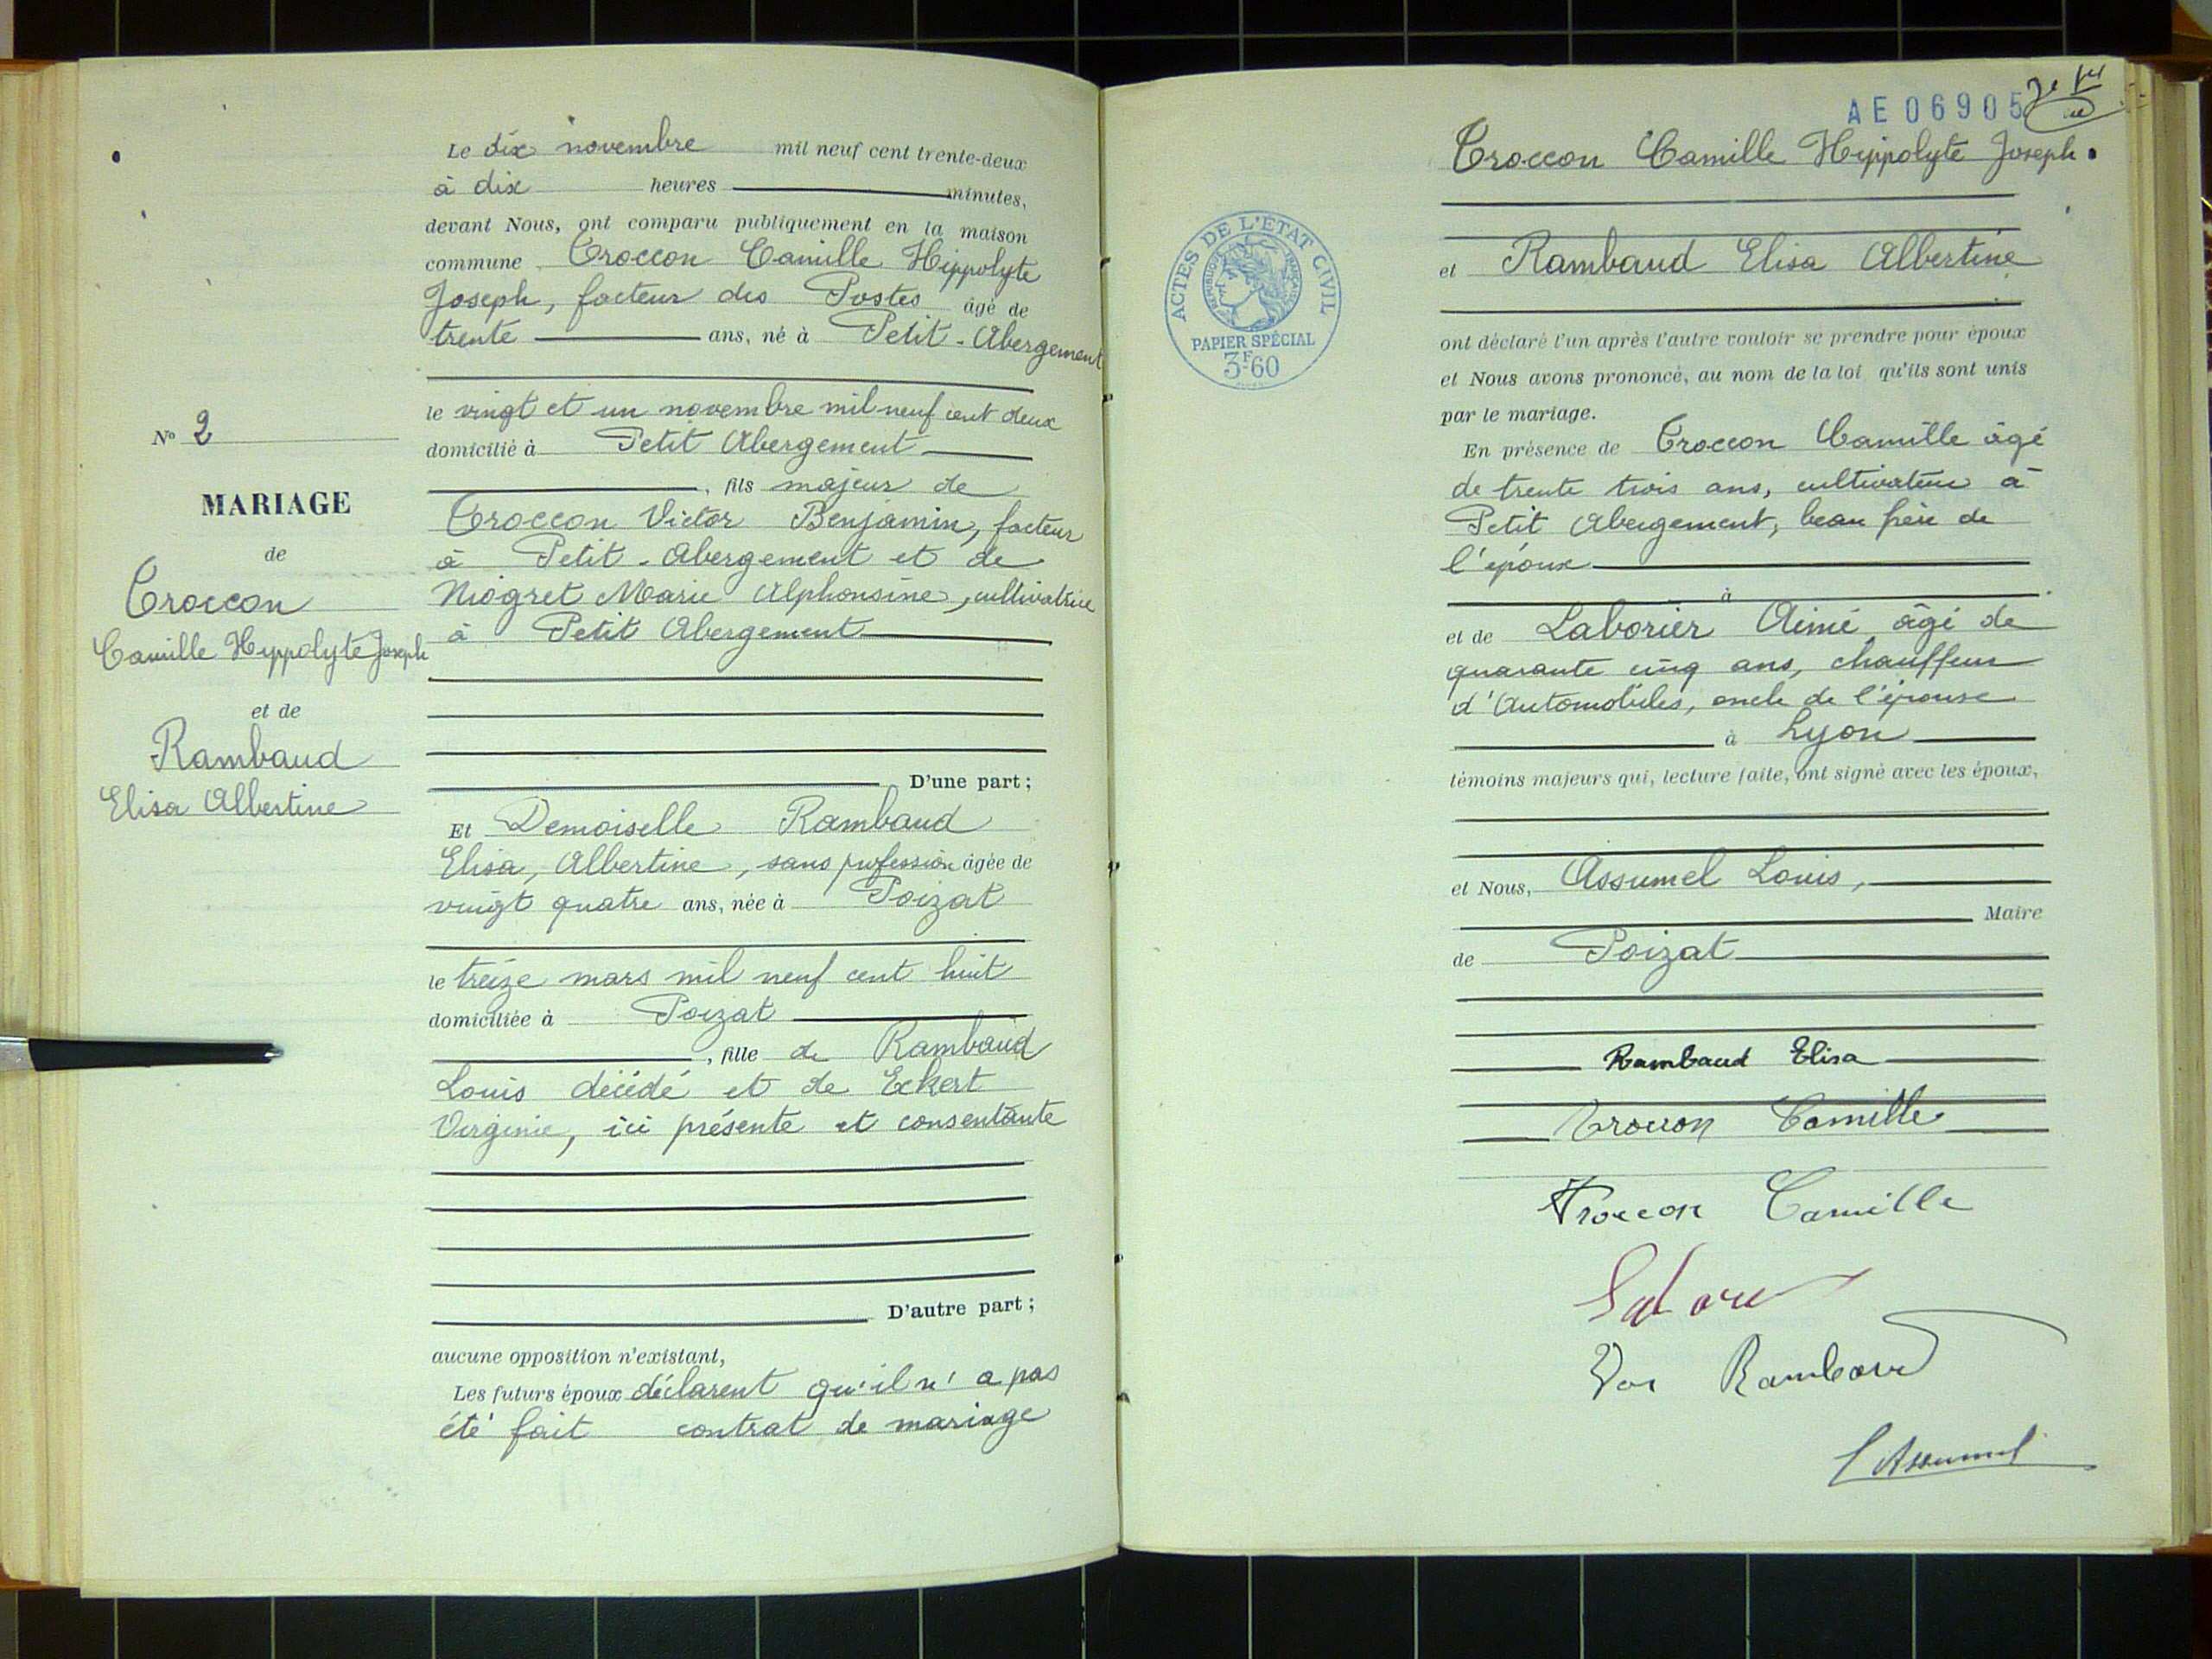 Le dix novembre mil neuf cent trente-deux
à dix heures minutes,
devant Nous, ont comparu publiquement en la maison
commune Troccon Camille Hippolyte
Joseph, facteur des Postes âgé de
trente ans, né à Petit-Abergement
le vingt et un novembre mil neuf cent deux
domicilié à Petit Abergement
, fils majeur de
Troccon Victor Benjamin, facteur
à Petit-Abergement et de
Niogret Marie Alphonsine, cultivatrice
à Petit Abergement
D'une part;
Et Demoiselle Rambaud
Elisa, Albertine, sans profession âgée de
vingt quatre ans, née à Poizat
le treize mars mil neuf cent huit
domiciliée à Poizat
, fille de Rambaud
Louis décédé et de Eckert
Virginie, ici présente et consentante
D'autre part;
aucune opposition n'existant,
Les futurs époux déclarent qu'il n'a pas
été fait contrat de mariage
N° 2
MARIAGE
de
Troccon
Camille Hippolyte Joseph
et de
Rambaud
Elisa Albertine
AE 06905
Troccon Camille Hippolyte Joseph.
et Rambaud Elisa Albertine
ont déclaré l'un après l'autre vouloir se prendre pour époux
et Nous avons prononcé, au nom de la loi qu'ils sont unis
par le mariage.
En présence de Troccon Camille âgé
de trente trois ans, cultivateur à
Petit Abergement, beau frère de
l'époux
à
et de Laborier Aimé âgé de
quarante cinq ans, chauffeur
d'Automobiles, oncle de l'épouse
à Lyon
témoins majeurs qui, lecture faite, ont signé avec les époux,
et Nous, Assumel Louis,
Maire
de Poizat
Rambaud Elisa
Troccon Camille
Troccon Camille
Rambaud
L Assumel
ACTES DE L'ETAT CIVIL
REPUBLIQUE FRANÇAISE
PAPIER SPÉCIAL
3F60